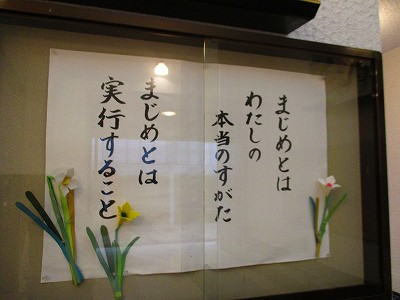 まじめとは
わたしの
本当のすがた
まじめとは
実行すること